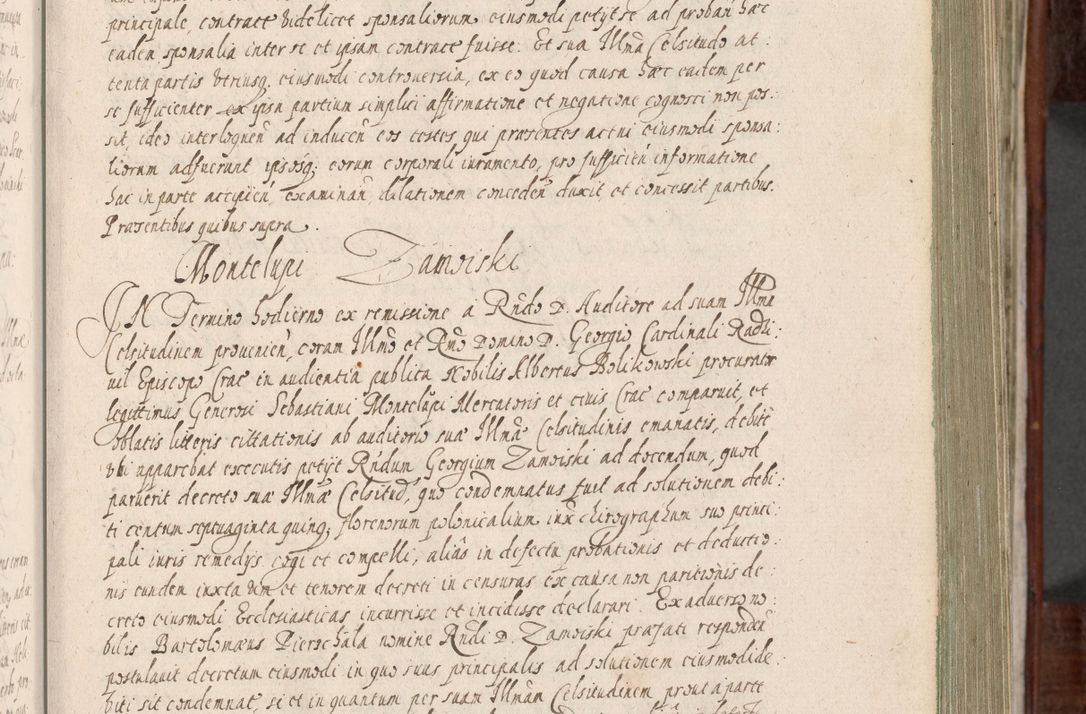 principale, contracte videlicet sponsaliorum eiusmodi petijt se ad proban̄ hæc
eaden sponsalia inter se et ipsam contracte fuisse. Et sua Illm̃a Celsitudo at:
tenta partis vtriusq. eiusmodi controuersia, ex eo quod causa hæc eadem per
se sufficienter ex ipsa partium simplici affirmatione et negatione cognosci non pos:
sit, ideo interloquen̄ ad inducen̄ eos testes qui præsentes actui eiusmodi sponsa:
liorum adfuerunt ipsosq; eorum corporali iuramento, pro sufficien̄ informatione
hac in parte accipien̄, examinan̄, dilationem conceden̄ duxit, et concessit partibus.
Præsentibus quibus supra.
Montelupi Zamoiski
IN Termino hodierno ex remissione à Rn̄do D. Auditore ad suam Illm̃a
Celsitudinem prouenien̄, coram Illm̃o et Rm̃o Domino D. Georgio Cardinali Radzi:
uil Episcopo Crac in audientia publica Nobilis Albertus Bolikowski procurator
legittimus Generosi Sebastiani Montelupi Mercatoris et ciuis Crac comparuit, et
oblatis litteris cittationis ab auditorio suæ Illm̃æ Celsitudinis emanatis, debitè
vbi apparebat executis petijt Rn̄dum Georgium Zamoiski ad docendum, quod
paruerit decreto suæ Illm̃æ Celsitud, quo condemnatus fuit ad solutionem debi:
ti centum septuaginta quinq; florenorum polonicalium iux̄ chirographum suo princi:
pali iuris remedys cogi et compelli, aliàs in defectu probationis et deductio:
nis eundem iuxta vim et tenorem decreti in censuras ex causa non paritionis de:
creto eiusmodi Ecclesiasticas incurrisse et incidisse declarari. Ex aduerso no:
bilis Bartolomæus Pierzchala nomine Rn̄di D. Zamoiski præfati responden̄
postulauit decretum eiusmodi in quo suus principalis ad solutionem eiusmodi de:
biti sit condemnat, si et in quantum per suam Illm̃am Celsitudinem prout a parte